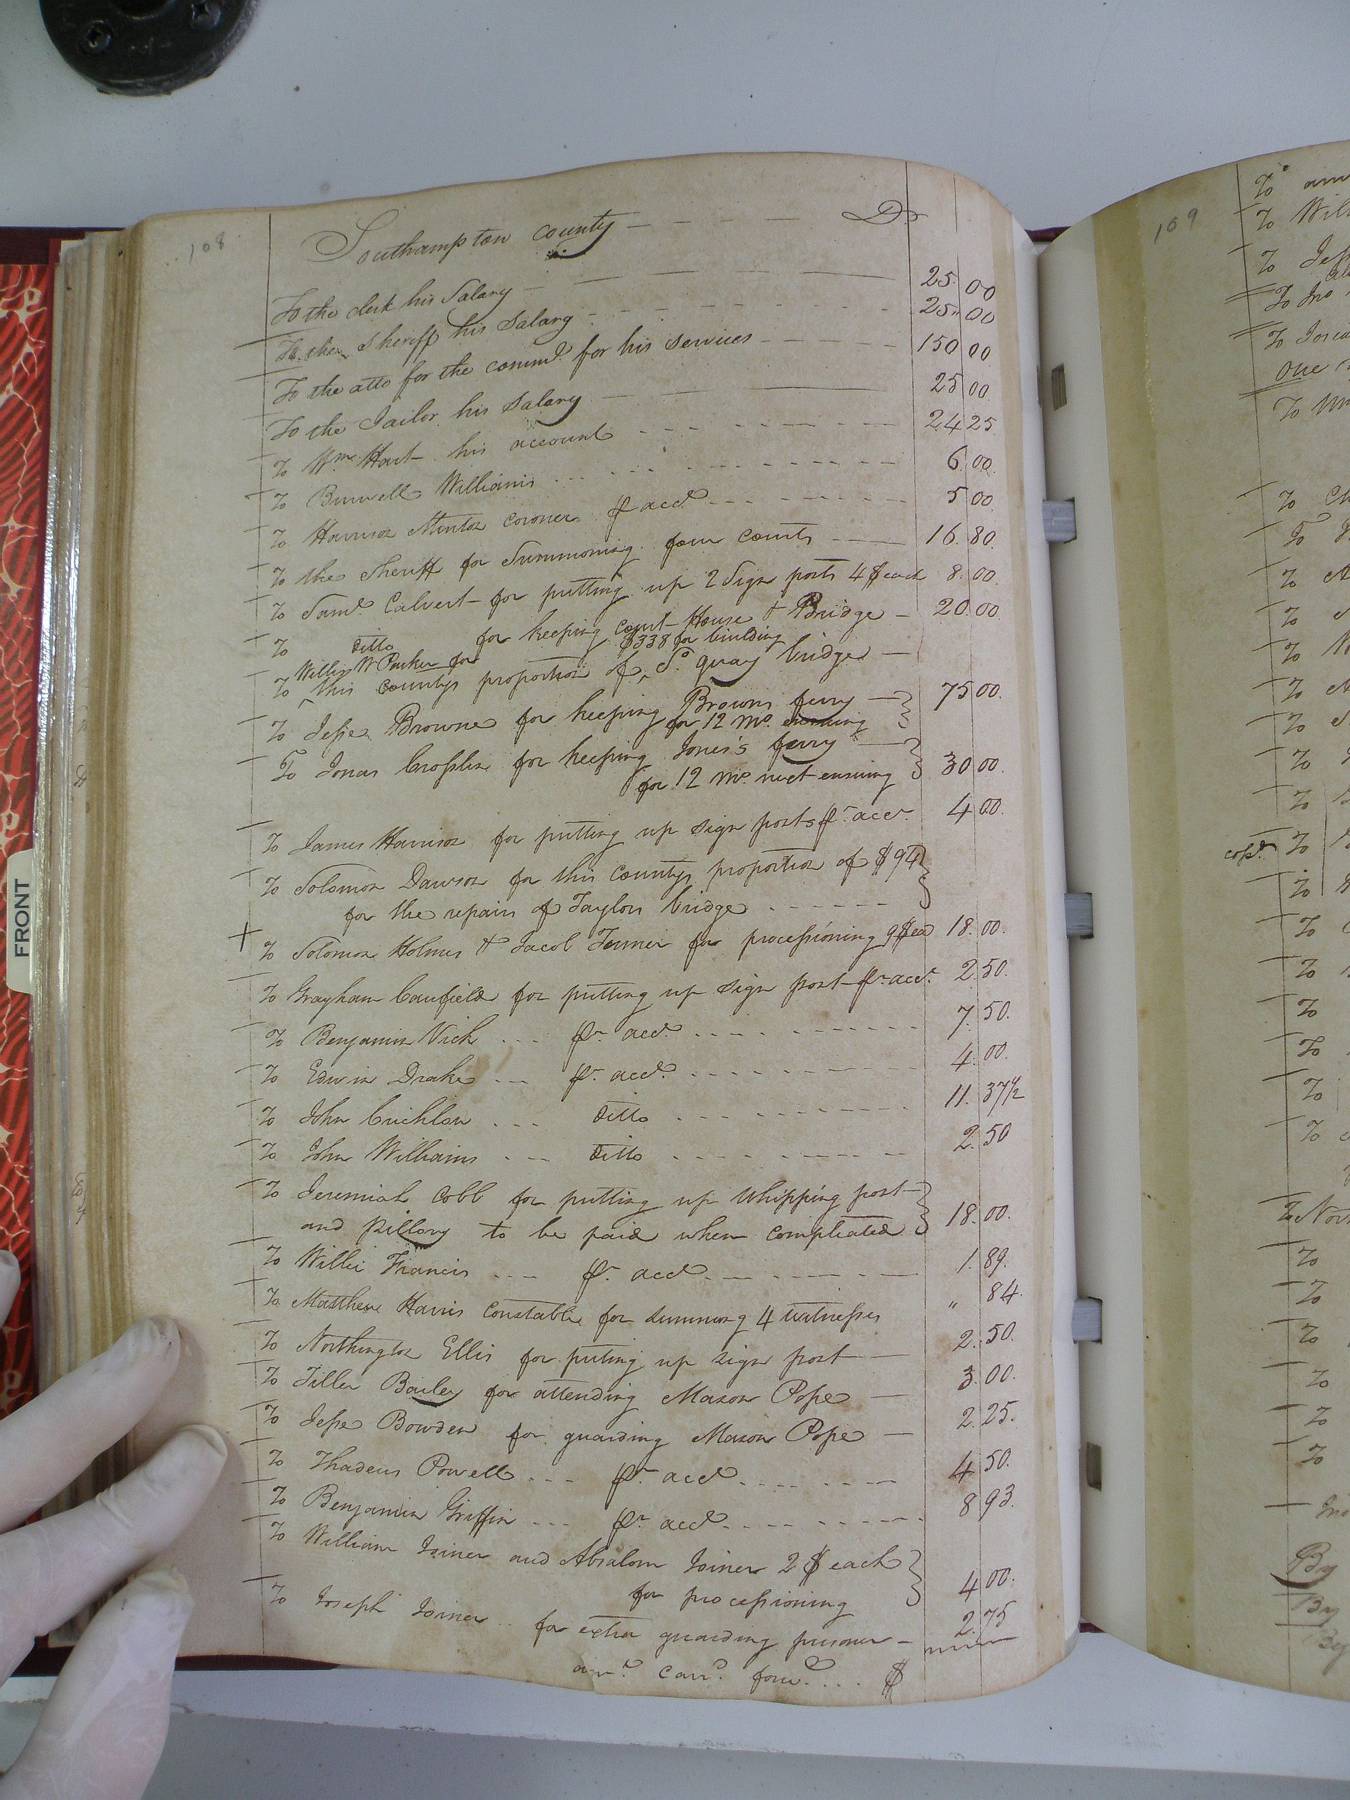 108
Southampton county Dr
To the clerk his Salary 25 00
To the Sheriff his Salary 25 00
To the atto for the commth for his services 150 00
To the Jailor his Salary 25 00
To Wm Hart his account 24 25
To Burwell Williams 6.00
To Harrison Minton coroner pr accot 5 00
To the Sheriff for Summoning four courts 16.80
To Saml Calvert for putting up 2 Sign posts 4$ each 8.00
To ditto for keeping Court House & Bridge 20.00
Willis W Parker for $338 for building
To this Countys proportion of So quay bridge
To Jesse Browne for keeping Browns ferry 75 00
for 12 mo. ensuing
To Jonas Crosslin for keeping Jones's ferry
for 12 mo. next ensuing 30 00
To James Harrison for putting up sign posts pr acct 4 00
To Solomon Dawson for this Countys proportion of $94
for the repairs of Taylors bridge
+ To Solomon Holmes & Jacob Turner for processioning 9$ ea 18.00
To Grayham Caufield for putting up sign post pr acct 2.50
To Benjamin Vick pr acct 7.50
To Edwin Drake pr acct. 4.00
To John Crichlow ditto 11.37 1/2
To John Williams ditto 2.50
To Jeremiah Cobb for putting up whipping post
and pillory to be paid when compleated 18.00
To Willie Francis pr acct 1.89
To Matthew Harris Constable for summong 4 witnesses " 84
To Northington Ellis for puting up sign post 2.50
To Tiller Bailey for attending Mason Pope 3.00
To Jesse Bowden for guarding Mason Pope 2.25
To Thadeus Powell pr acct 4 50
To Benjamin Griffin pr acct 8 93
To William Joiner and Absalom Joiner 2$ each
for processioning 4 00
To Joseph Joiner for extra guarding prisoner 2.75
amt. card. forwd. $
FRONT
109
To
To
To Jno
To
one
To
To
To
To
To
To
To
To
To
To
To
To
To
To
To
To
To
To
To
To
To
To
To
To
To
By
By
By